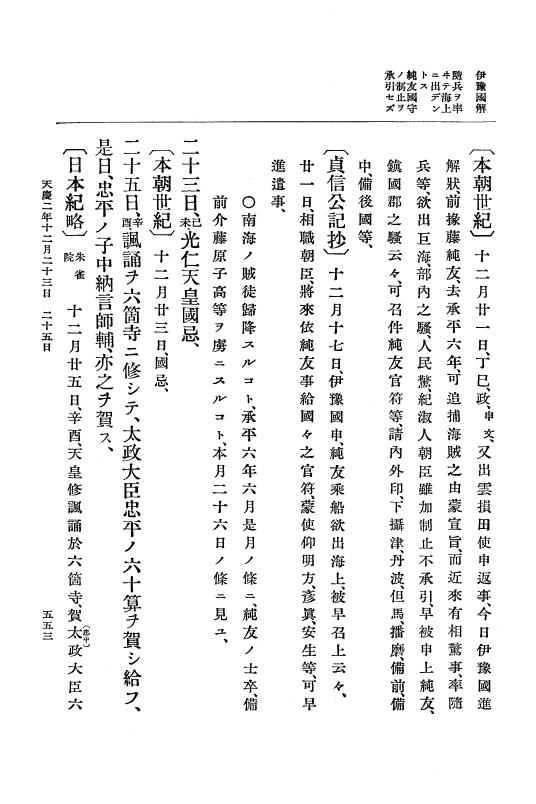 伊豫國解
隨兵ヲ率
ヰテ海上
ニ出デン
トス
純友國守
ノ制止ヲ
承引セズ
〔本朝世紀〕十二月廿一日、丁巳、政、申文、又出雲損田使申返事、今日伊豫國進
解狀、前掾藤純友去承平六年、可追捕海賊之由蒙宣旨、而近來有相驚事、率隨
兵等、欲出巨海、部內之騷、人民驚、紀淑人朝臣雖加制止不承引、早被申上純友、
鎭國郡之騷云々、可召件純友官符等、請內外印、下攝津、丹波、但馬、播磨、備前、備
中、備後國等、
〔貞信公記抄〕十二月十七日、伊豫國申、純友乘船欲出海上、被早召上云々、
廿一日、相職朝臣、將來依純友事給國々之官符、蒙使仰明方、彥眞、安生等、可早
進遣事、
〇南海ノ賊徒歸降スルコト、承平六年六月是月ノ條ニ、純友ノ士卒、備
前介藤原子高等ヲ虜ニスルコト、本月二十六日ノ條ニ見ユ、
二十三日、己未光仁天皇國忌、
〔本朝世紀〕十二月廿三日、國忌、
二十五日、辛酉諷誦ヲ六箇寺ニ修シテ、太政大臣忠平ノ六十算ヲ賀シ給フ、
是日、忠平ノ子中納言師輔、亦之ヲ賀ス、
〔日本紀略〕朱雀院 十二月廿五日、辛酉、天皇修諷誦於六箇寺、賀太政大臣六
(忠平)
天慶二年十二月二十三日 二十五日
五五三